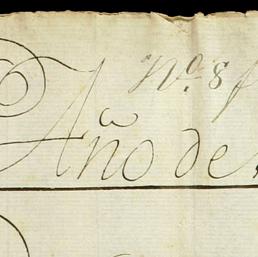 No. 8
Año de